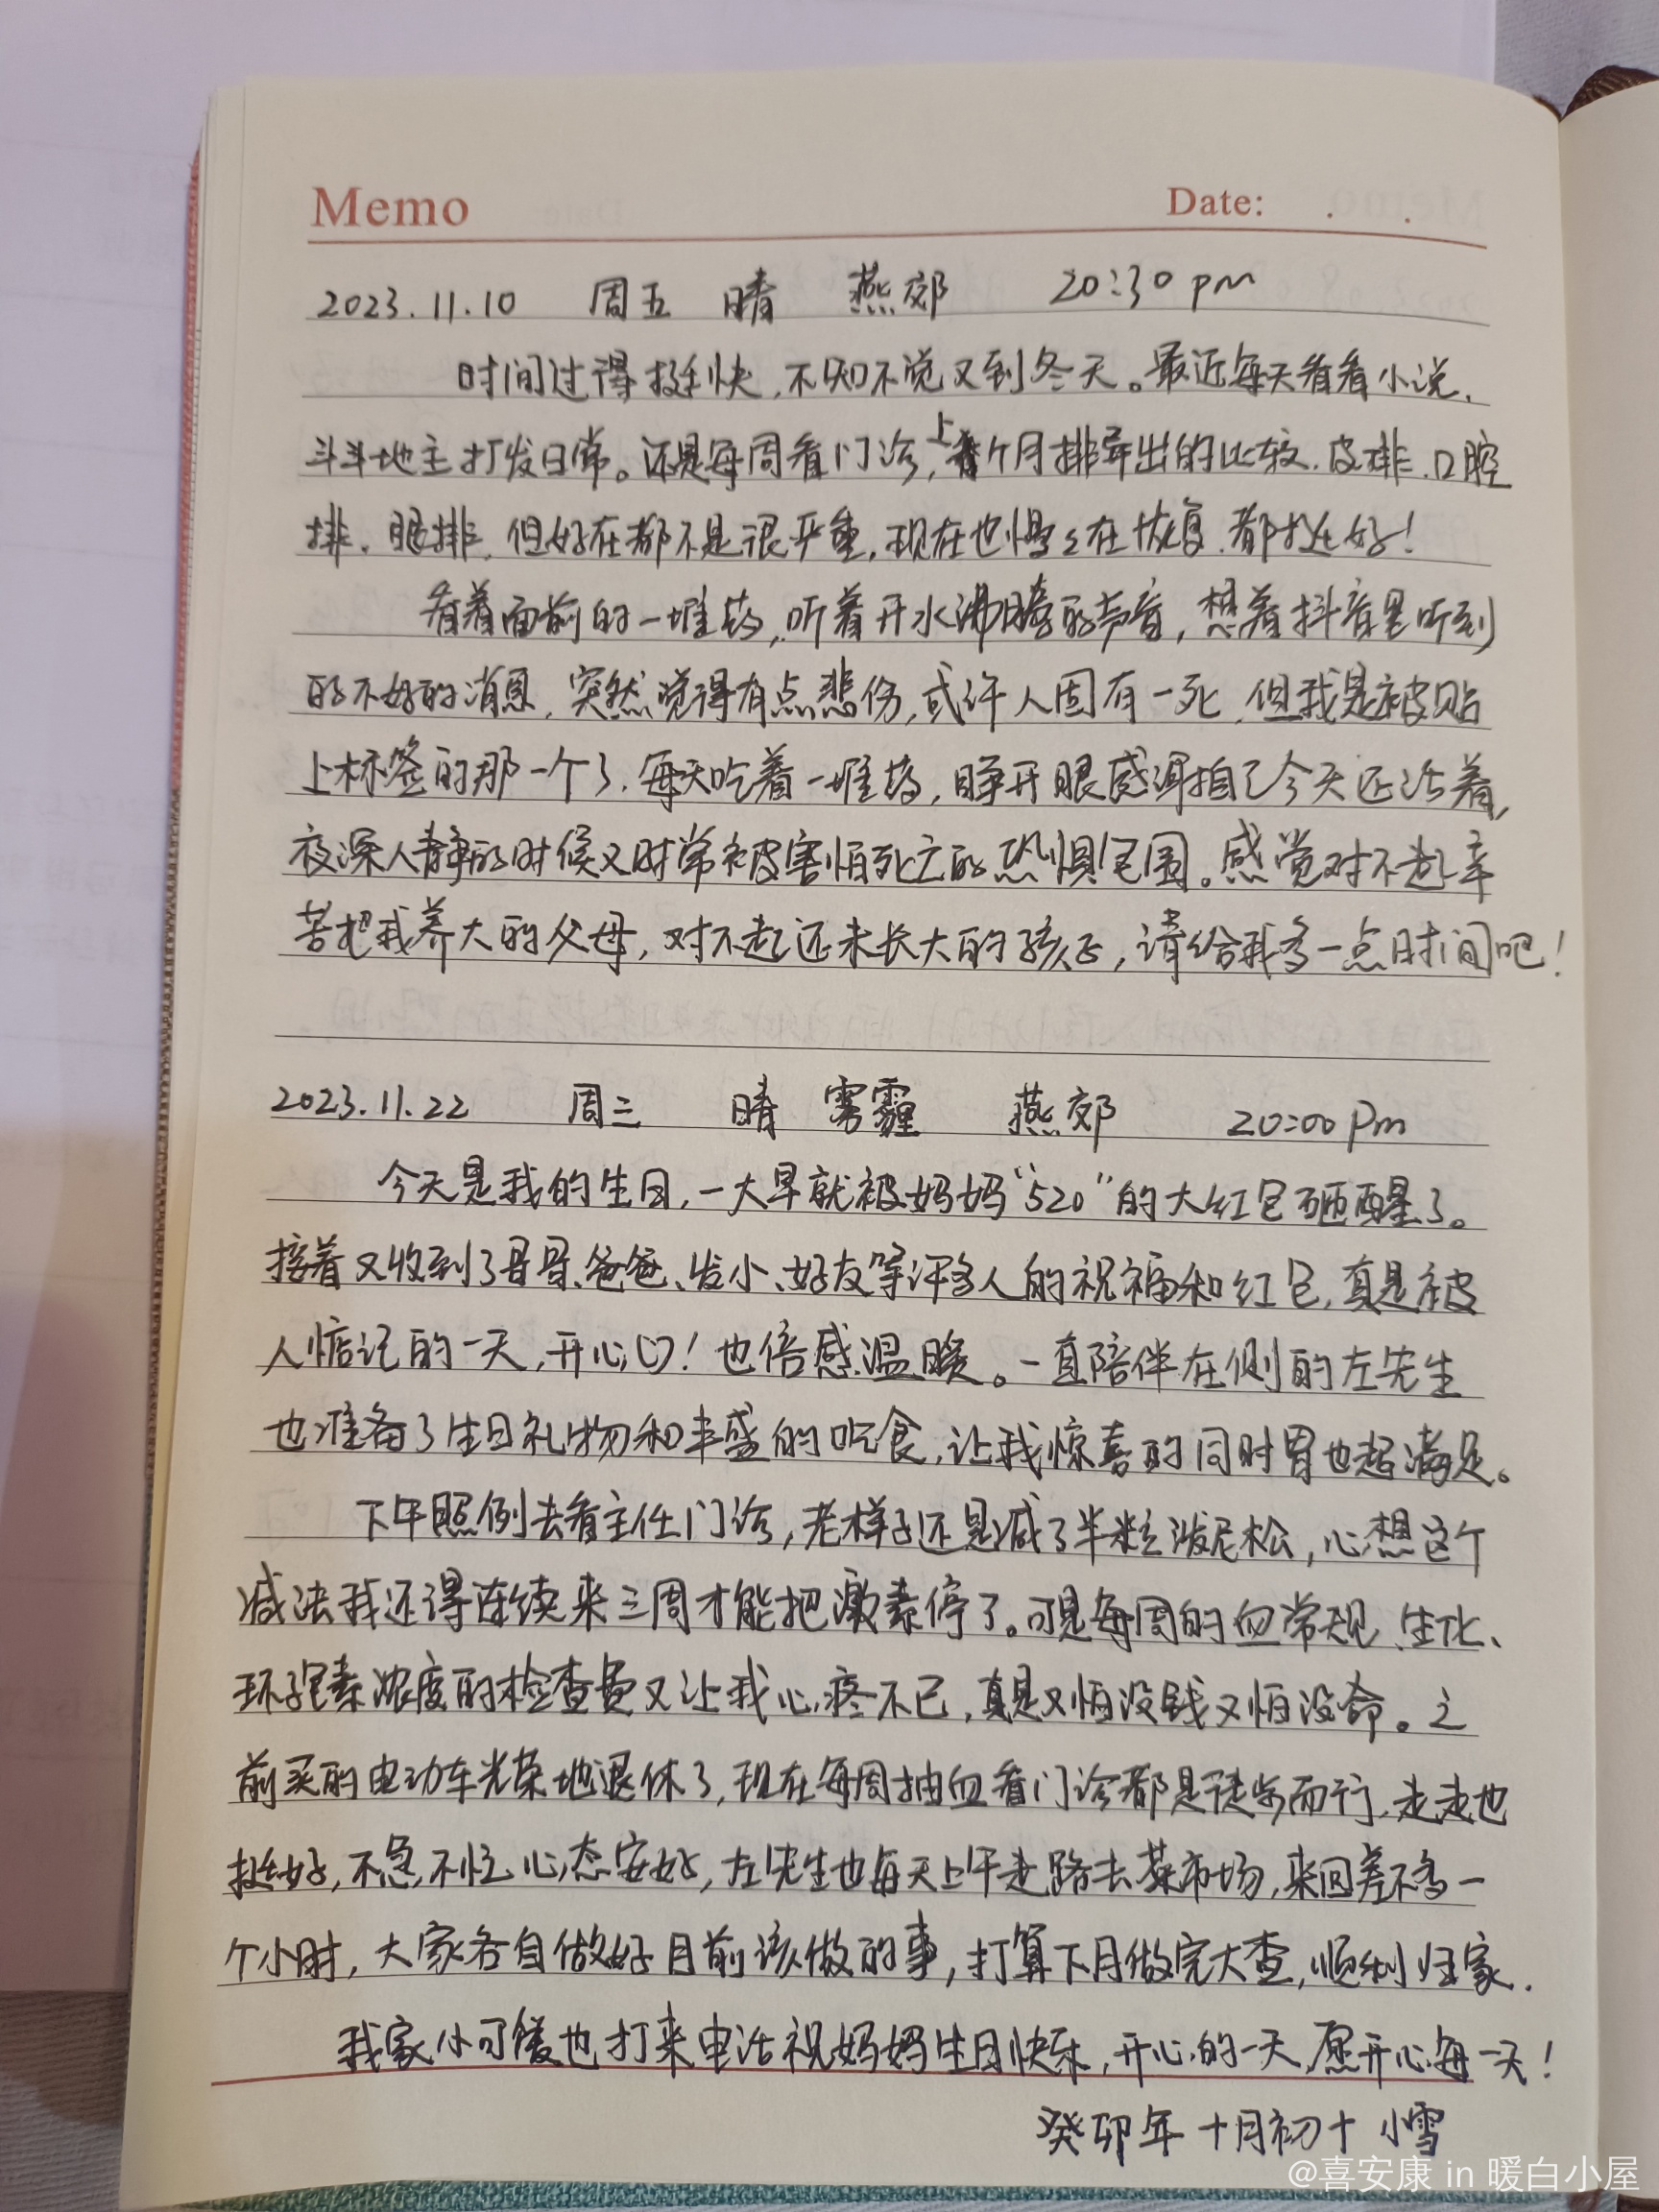 Memo Date: . .
2023.11.10 周五 晴 燕郊 20:30 pm
时间过得挺快,不知不觉又到冬天。最近每天看看小说,
斗斗地主打发日常。还是每周看门诊,上个月排异出的比较,皮排、口腔
排、眼排,但好在都不是很严重,现在也慢慢在恢复,都挺好!
看着面前的一堆药,听着开水沸腾的声音,想着抖音里听到
的不好的消息,突然觉得有点悲伤,或许人固有一死,但我是被贴
上标签的那一个了,每天吃着一堆药,睁开眼感谢自己今天还活着,
夜深人静的时候又时常被害怕死亡的恐惧包围。感觉对不起辛
苦把我养大的父母,对不起还未长大的孩子,请给我多一点时间吧!
2023.11.22 周三 晴 雾霾 燕郊 20:00 Pm
今天是我的生日,一大早就被妈妈“520”的大红包砸醒了。
接着又收到了哥哥、爸爸、发小、好友等许多人的祝福和红包,真是被
人惦记的一天,开心!也倍感温暖。一直陪伴在侧的左先生
也准备了生日礼物和丰盛的吃食,让我惊喜的同时胃也超满足。
下午照例去看主任门诊,老样子还是减了半粒泼尼松,心想这个
减法我还得连续来三周才能把激素停了。可是每周的血常规、生化、
环孢素浓度的检查费又让我心疼不已,真是又怕没钱又怕没命。之
前买的电动车光荣地退休了,现在每周抽血看门诊都是徒步而行,走走也
挺好,不急,不忙,心态安好,左先生也每天上午走路去菜市场,来回差不多一
个小时,大家各自做好目前该做的事,打算下月做完大查,顺利归家.
我家小可爱也打来电话祝妈妈生日快乐,开心的一天,愿开心每一天!
癸卯年 十月初十 小雪
@喜安康 in 暖白小屋